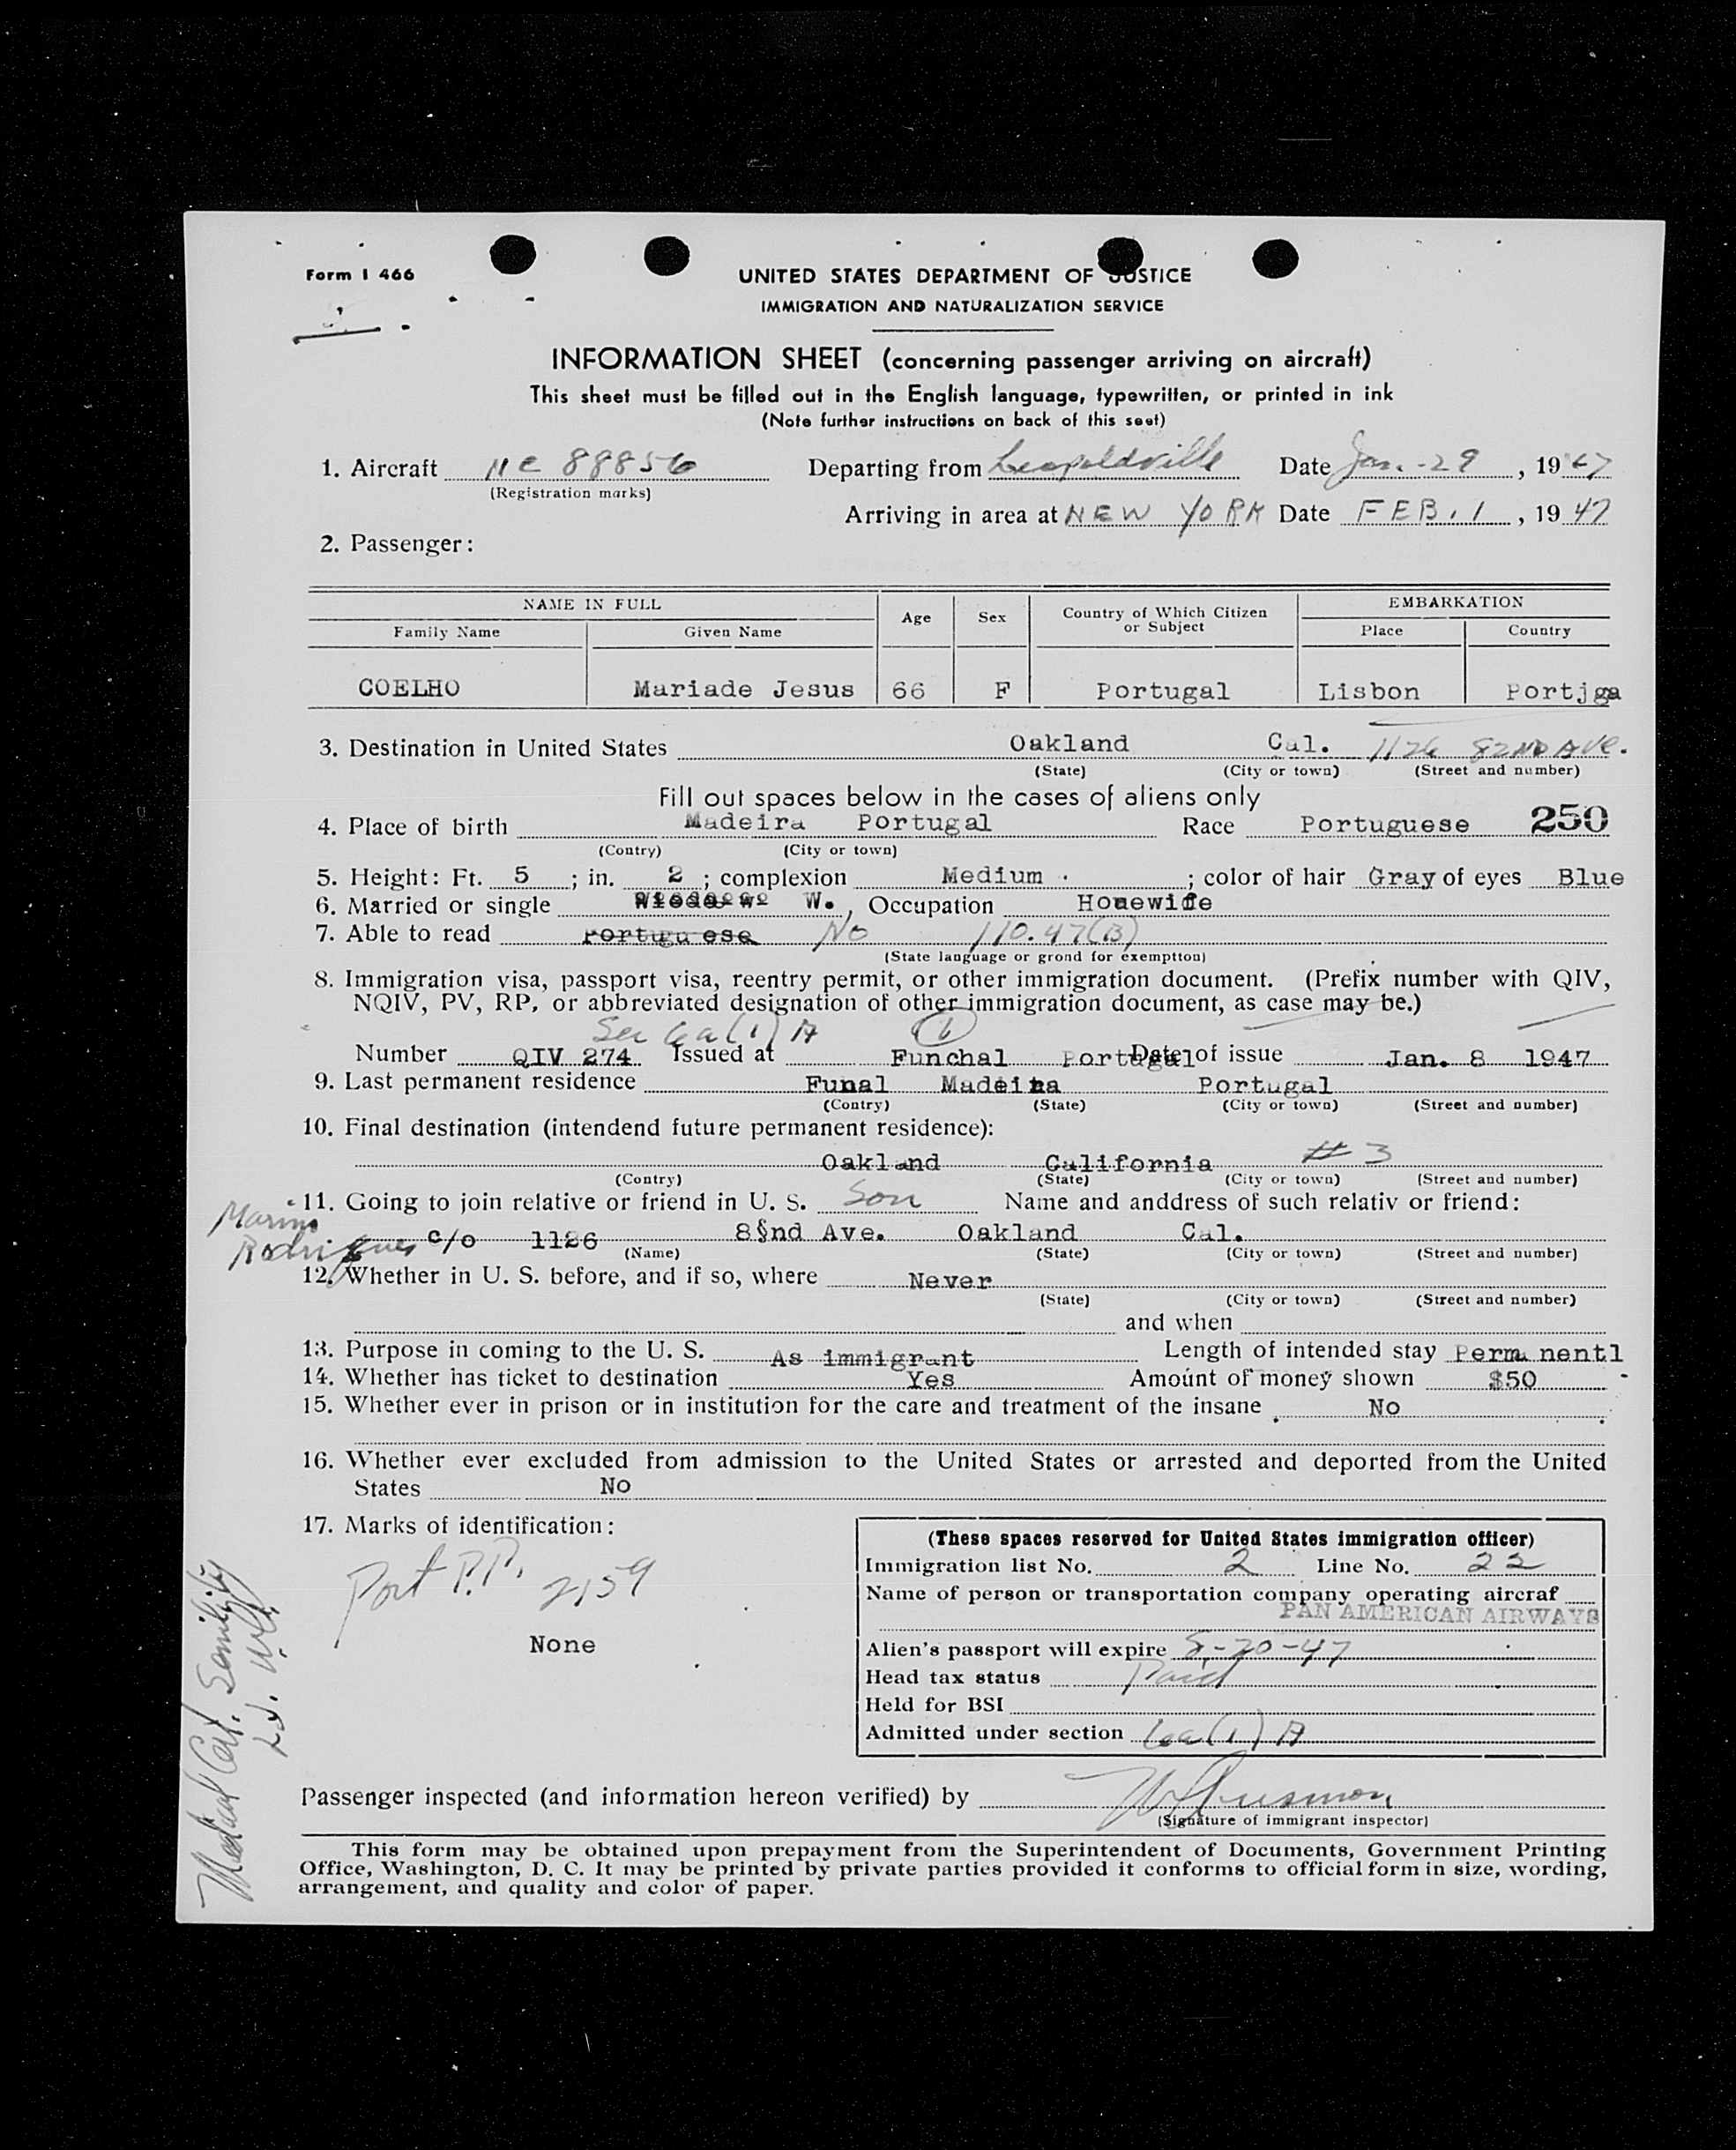 Form I 466
UNITED STATES DEPARTMENT OF JUSTICE
IMMIGRATION AND NATURALIZATION SERVICE
INFORMATION SHEET (concerning passenger arriving on aircraft)
This sheet must be filled out in the English language, typewritten, or printed in ink
(Note further instructions on back of this seet)
1. Aircraft NC 88856 Departing from Leopoldville Date Jan. - 29, 1947
(Registration marks)
Arriving in area at NEW YORK Date FEB. 1, 1947
2. Passenger:
NAME IN FULL Age Sex Country of Which Citizen or Subject EMBARKATION
Family Name Given Name Place Country
COELHO Mariade Jesus 66 F Portugal Lisbon Portjga
3. Destination in United States Oakland Cal. 1126 82ND AVE.
(State) (City or town) (Street and number)
Fill out spaces below in the cases of aliens only
4. Place of birth Madeira Portugal Race Portuguese 250
(Contry) (City or town)
5. Height: Ft. 5; in. 2; complexion Medium; color of hair Gray of eyes Blue
6. Married or single W., Occupation Housewife
7. Able to read Portuguese No 110.47(B)
(State language or grond for exemptton)
8. Immigration visa, passport visa, reentry permit, or other immigration document. (Prefix number with QIV,
NQIV, PV, RP, or abbreviated designation of other immigration document, as case may be.)
Sec 6a(1) A
Number QIV 274 Issued at Funchal Portugal Date of issue Jan. 8 1947
9. Last permanent residence Funal Madeira Portugal
(Contry) (State) (City or town) (Street and number)
10. Final destination (intendend future permanent residence):
Oakland California # 3
(Contry) (State) (City or town) (Street and number)
11. Going to join relative or friend in U. S. Son Name and anddress of such relativ or friend:
Marino
Rodrigues c/o 1126 82nd Ave. Oakland Cal.
(Name) (State) (City or town) (Street and number)
12. Whether in U. S. before, and if so, where Never
(State) (City or town) (Street and number)
and when
13. Purpose in coming to the U. S. As immigrant Length of intended stay Permanentl
14. Whether has ticket to destination Yes Amount of money shown $50
15. Whether ever in prison or in institution for the care and treatment of the insane No
16. Whether ever excluded from admission to the United States or arrested and deported from the United
States No
17. Marks of identification:
Port P.P. 2159
None
(These spaces reserved for United States immigration officer)
Immigration list No. 2 Line No. 22
Name of person or transportation company operating aircraf
PAN AMERICAN AIRWAYS
Alien's passport will expire 5-20-47
Head tax status Paid
Held for BSI
Admitted under section 6a(1) A
Medical Cert. Senility
Passenger inspected (and information hereon verified) by
(Signature of immigrant inspector)
This form may be obtained upon prepayment from the Superintendent of Documents, Government Printing
Office, Washington, D. C. It may be printed by private parties provided it conforms to official form in size, wording,
arrangement, and quality and color of paper.